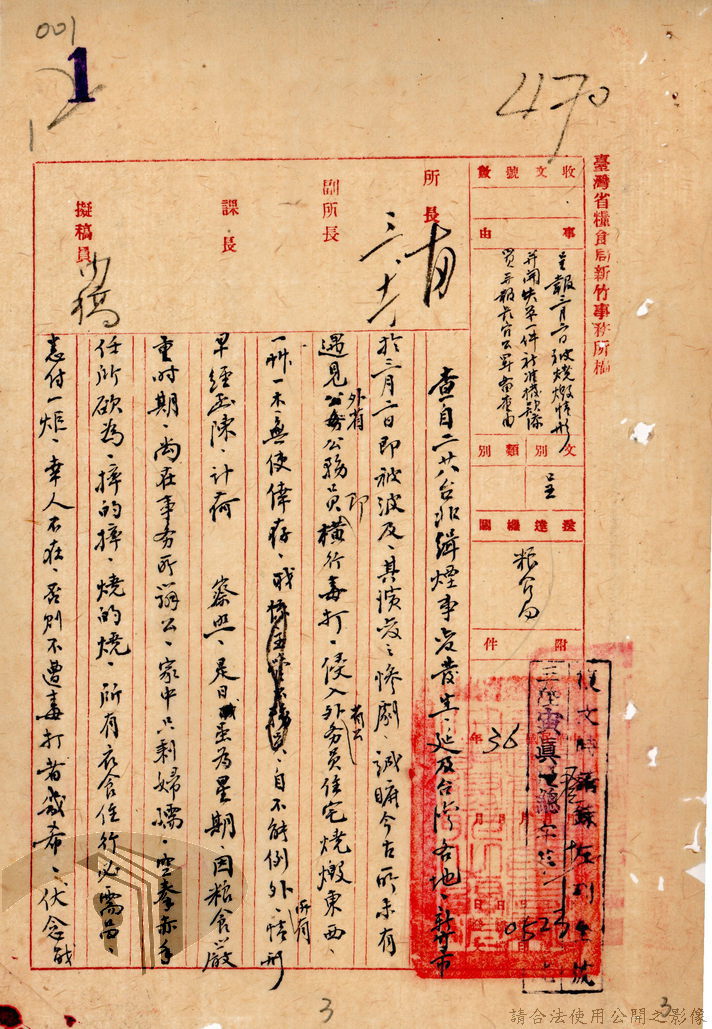 001
1
470
臺灣省糧食局新竹事務所稿
收文號數
事由
呈報三月二日被燒燬情形
文別
類別
呈
送達機關
糧食局
附件
所長
三、十
副所長
課長
擬稿員
查自二二八台北緝煙事件發生、延及台灣各地、新竹市
於三月二日即被波及、其演変之慘劇、誠曠今古所未有
遇見外省公務員即橫行毒打、侵入外省公務員住宅燒燬東西、
一艸一木無使倖存、職自不能例外、所有情形
早經函陳、計荷 察照、是日雖為星期、因粮食嚴
重時期、尚在事務所辦公、家中只剩婦孺、空拳赤手
任所欲為、摔的摔、燒的燒、所有衣食住行必需品、
悉付一炬、幸人不在、否則不遭毒打者幾希、伏念職
年 36
月
日
0523
3
3
請合法使用公開之影像